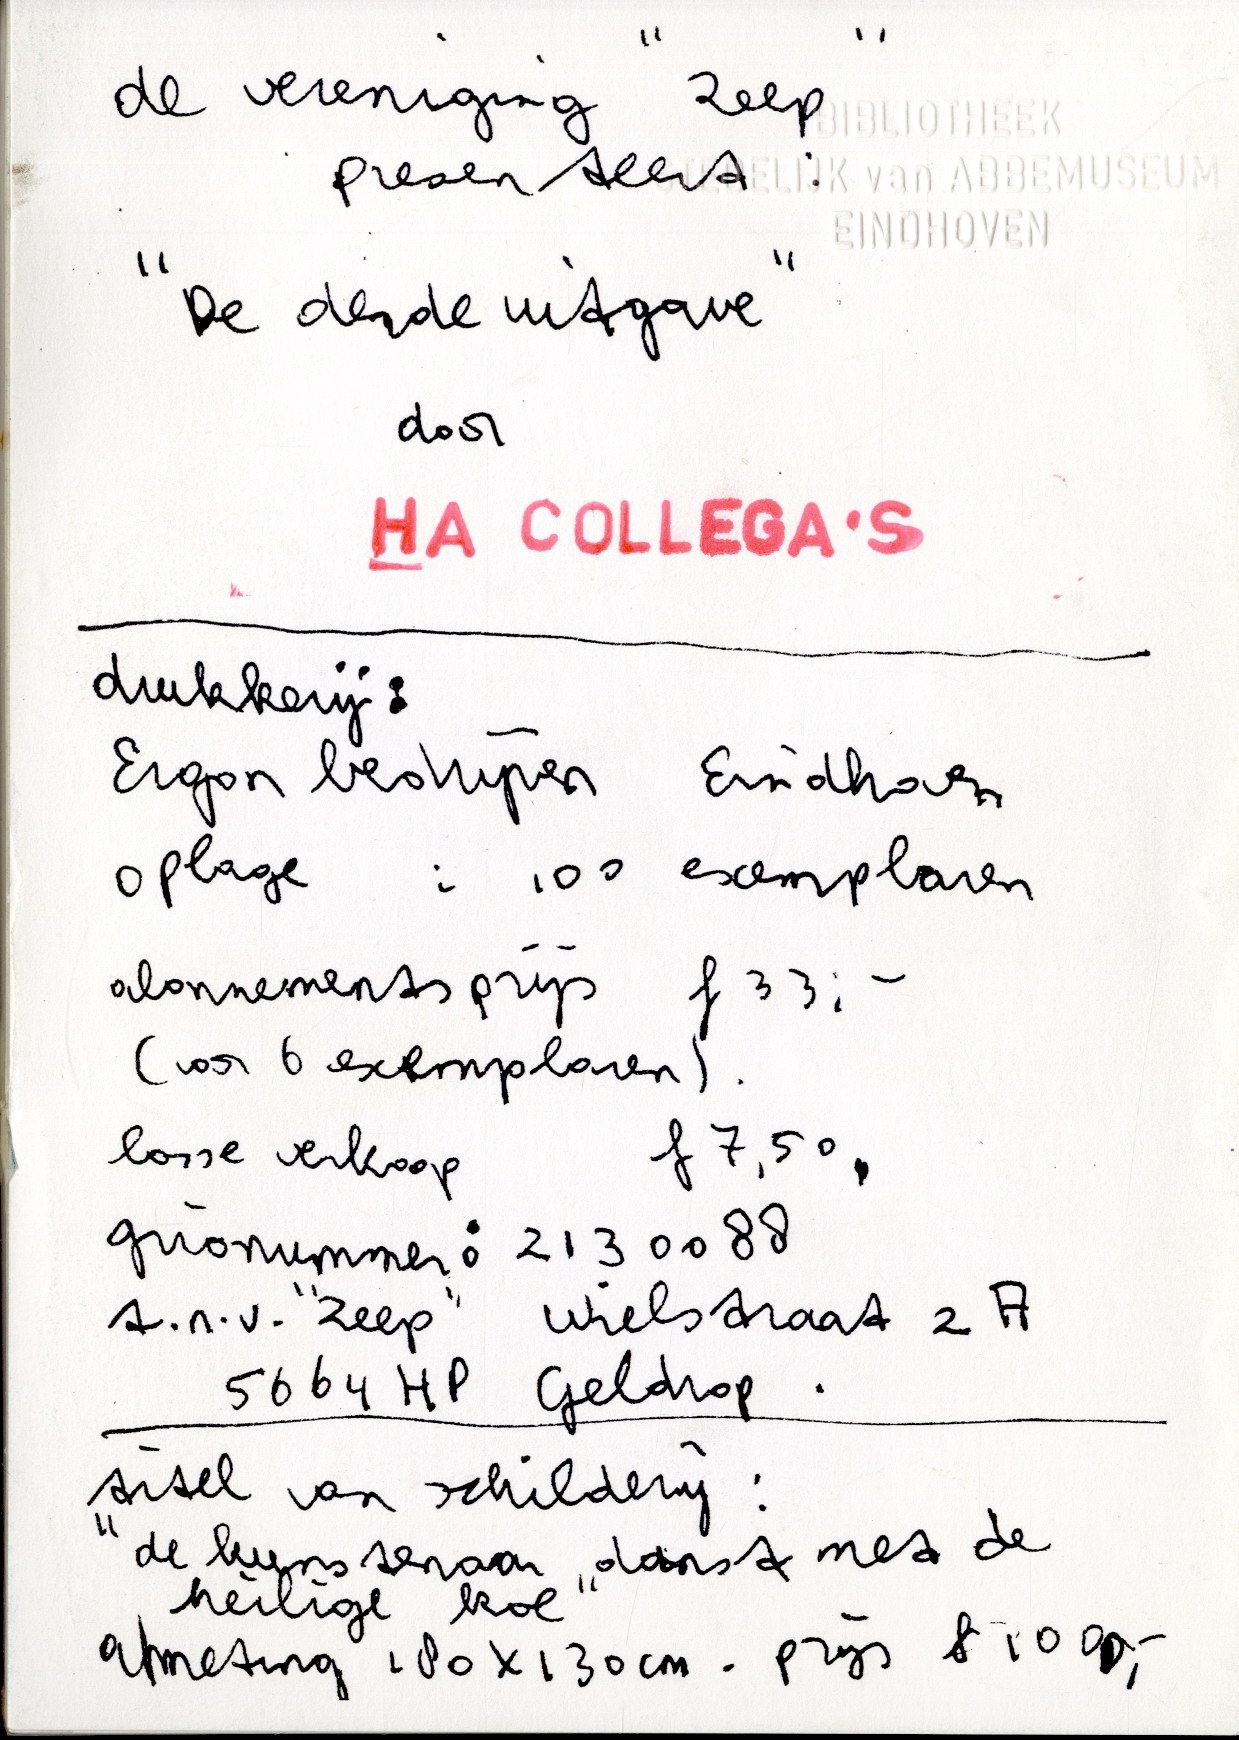 de vereniging "Zeep"
BIBLIOTHEEK
presenteert:
STEDELIJK van ABBEMUSEUM
EINDHOVEN
"De derde uitgave"
door
HA COLLEGA'S
drukkerij:
Ergon bedrijven Eindhoven
oplage : 100 exemplaren
abonnementsprijs f 33,-
(voor 6 exemplaren).
losse verkoop f 7,50,
gironummer: 2130088
t.n.v. "Zeep" Wielstraat 2 A
5664 HP Geldrop .
titel van schilderij :
"de kunstenaar danst met de
heilige koe"
afmeting 180 x 130 cm. prijs f 1000,-